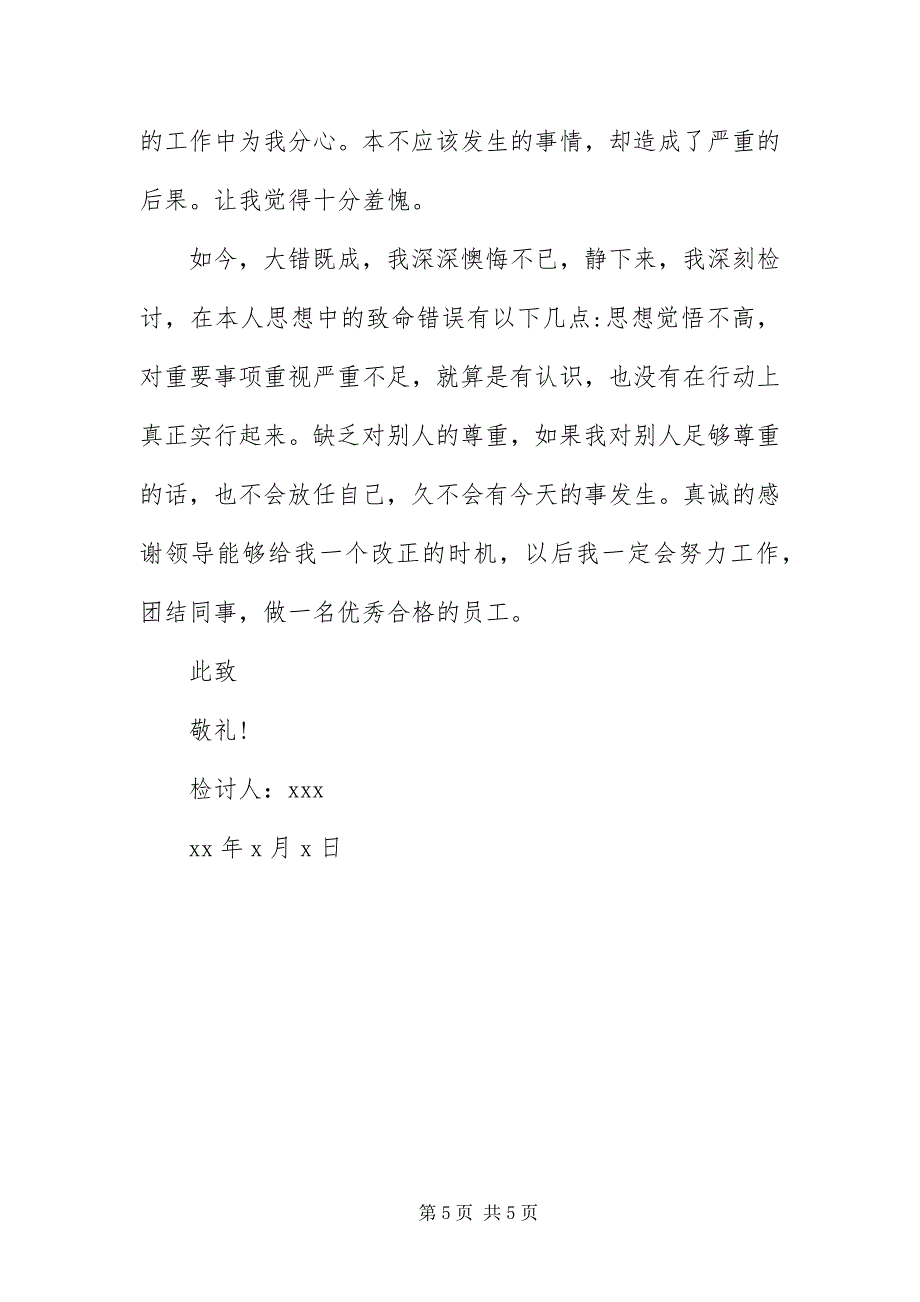 的工作中为我分心。本不应该发生的事情，却造成了严重的
后果。让我觉得十分羞愧。
如今，大错既成，我深深懊悔不已，静下来，我深刻检
讨，在本人思想中的致命错误有以下几点:思想觉悟不高，
对重要事项重视严重不足，就算是有认识，也没有在行动上
真正实行起来。缺乏对别人的尊重，如果我对别人足够尊重
的话，也不会放任自己，久不会有今天的事发生。真诚的感
谢领导能够给我一个改正的时机，以后我一定会努力工作，
团结同事，做一名优秀合格的员工。
此致
敬礼!
检讨人：xxx
xx 年 x 月 x 日
第 5 页 共 5 页